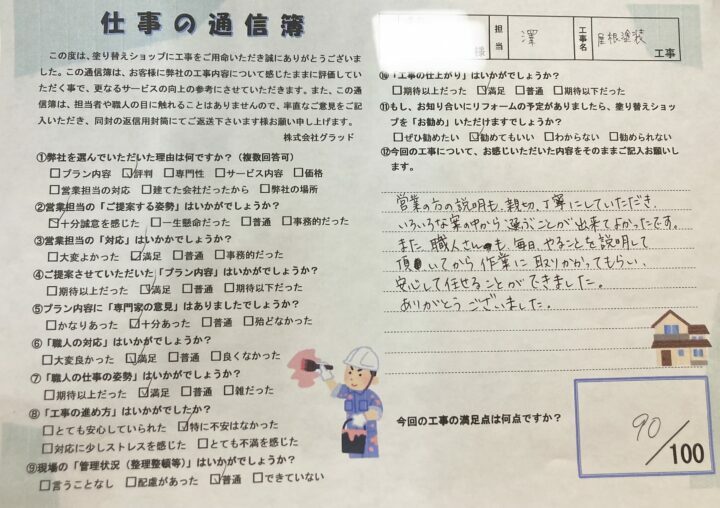 仕事の通信簿
様
担当
澤
工事名
屋根塗装
工事
この度は、塗り替えショップに工事をご用命いただき誠にありがとうございま
した。この通信簿は、お客様に弊社の工事内容について感じたままに評価してい
ただく事で、更なるサービスの向上の参考にさせていただきます。また、この通
信簿は、担当者や職人の目に触れることはありませんので、率直なご意見をご記
入いただき、同封の返信用封筒にてご返送下さいます様お願い申し上げます。
株式会社グラッド
①弊社を選んでいただいた理由は何ですか？（複数回答可）
□プラン内容 ☑評判 □専門性 □サービス内容 □価格
□営業担当の対応 □建てた会社だったから □弊社の場所
②営業担当の「ご提案する姿勢」はいかがでしたか？
☑十分誠意を感じた □一生懸命だった □普通 □事務的だった
③営業担当の「対応」はいかかでしょうか？
□大変よかった ☑満足 □普通 □事務的だった
④ご提案させていただいた「プラン内容」はいかがでしょうか？
□期待以上だった ☑満足 □普通 □期待以下だった
⑤プラン内容に「専門家の意見」はありましたでしょうか？
□かなりあった ☑十分あった □普通 □殆どなかった
⑥「職人の対応」はいかがでしょうか？
□大変良かった ☑満足 □普通 □良くなかった
⑦「職人の仕事の姿勢」はいかがでしょうか？
□期待以上だった ☑満足 □普通 □雑だった
⑧「工事の進め方」はいかがでしたか？
□とても安心していられた ☑特に不安はなかった
□対応に少しストレスを感じた □とても不満を感じた
⑨現場の「管理状況（整理整頓等）」はいかがでしょうか？
□言うことなし □配慮があった ☑普通 □できていない
⑩「工事の仕上がり」はいかがでしょうか？
□期待以上だった ☑満足 □普通 □期待以下だった
⑪もし、お知り合いにリフォームの予定がありましたら、塗り替えショッ
プを「お勧め」いただけますでしょうか？
□ぜひ勧めたい ☑勧めてもいい □わからない □勧められない
⑫今回の工事について、お感じいただいた内容をそのままご記入お願いし
ます。
営業の方の説明も、親切、丁寧にしていただき、
いろいろな案の中から選ぶことが出来てよかったです。
また職人さんも、毎日、やることを説明して
頂いてから作業に取りかかってもらい、
安心して任せることができました。
ありがとうございました。
今回の工事の満足点は何点ですか？
90/100